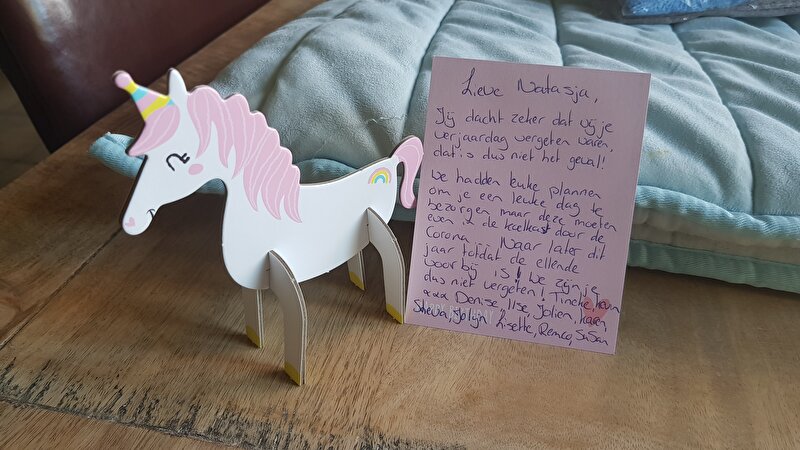 Lieve Natasja,
Jij dacht zeker dat wij je
verjaardag vergeten waren,
dat is dus niet het geval!
We hadden leuke plannen
om je een leuke dag te
bezorgen maar deze moeten
even in de koelkast door de
Corona... Naar later dit
jaar totdat de ellende
voorbij is! We zijn je
dus niet vergeten! Tineke,
xxx Denise, Ilse, Jolien, Karen,
Jolijn Lisette, Remco, Susan